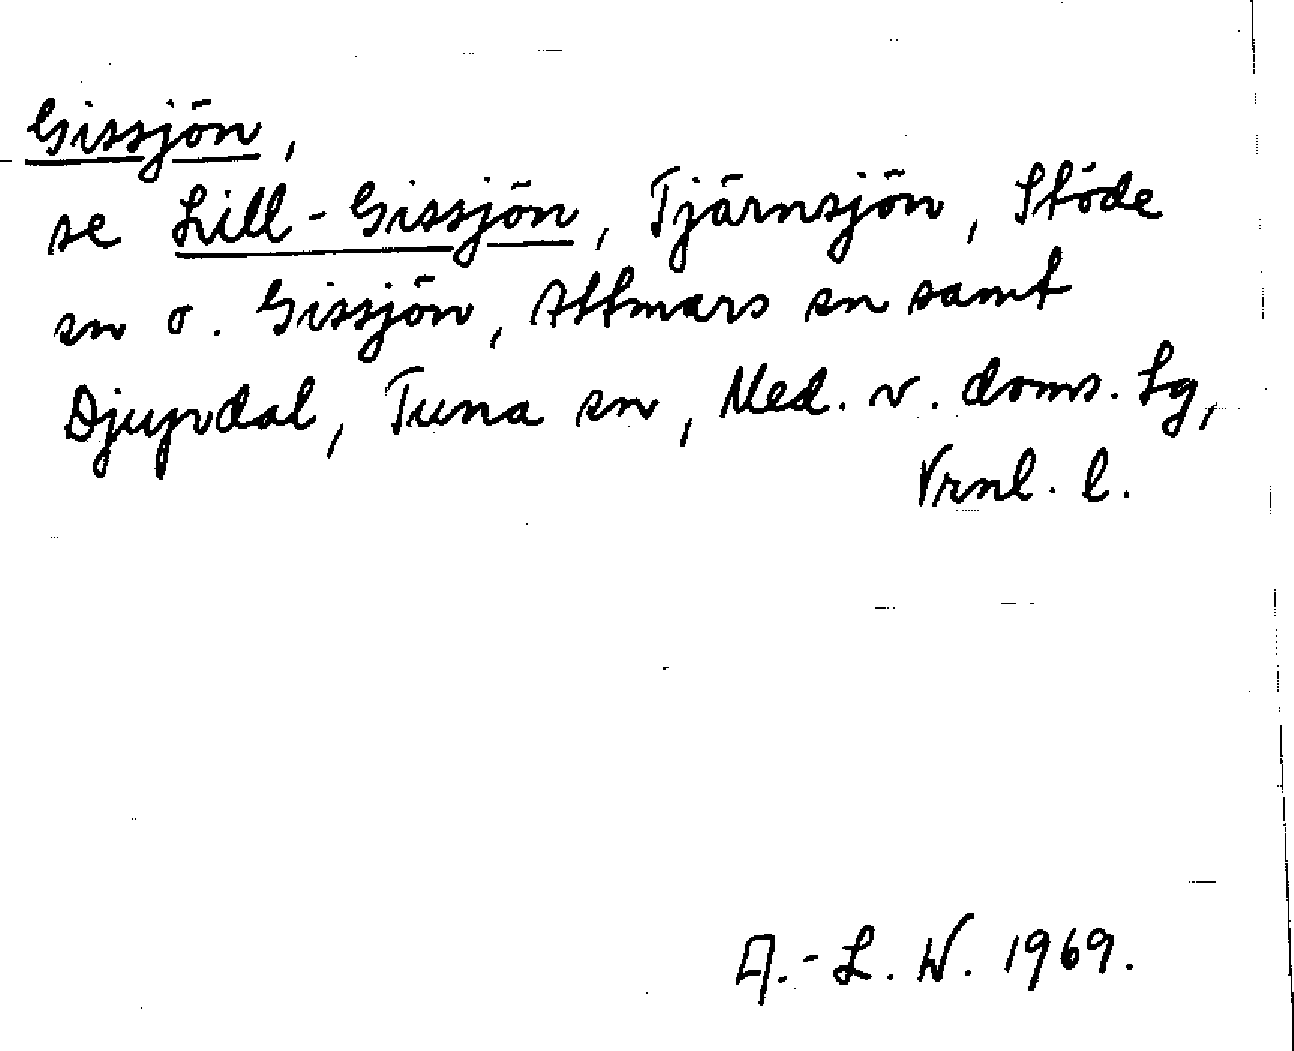 Gissjön,
se Lill-Gissjön, Tjärnsjön, Stöde
sn o. Gissjön, Attmars sn samt
Djupdal, Tuna sn, Med. v. doms. Lg,
Vrnl. l.
A.-L. W. 1969.